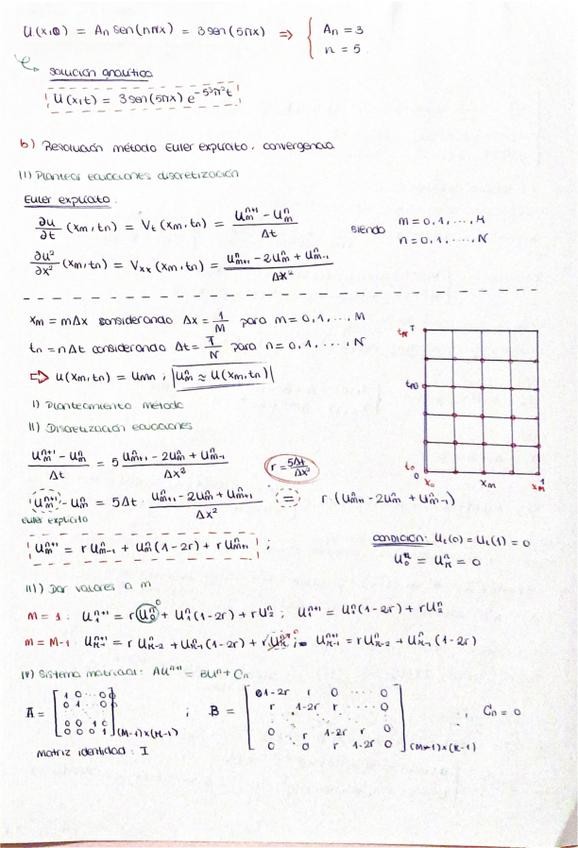 U(x,0) = An sen(nπx) = 3 sen(5πx) => { An = 3
n = 5
solución analítica
U(x,t) = 3 sen(5πx) e^-5³π²t
b) Resolución método Euler explícito. convergencia
(I) Plantear ecuaciones discretización
Euler explícito.
∂u/∂t (xm,tn) = Vt (xm,tn) = (Um^n+1 - Um^n)/Δt siendo m = 0,1,...,M
n = 0,1,...,N
∂u²/∂x² (xm,tn) = Vxx (xm,tn) = (Um+1^n - 2Um^n + Um-1^n)/Δx²
xm = mΔx considerando Δx = 1/M para m = 0,1,...,M
tn = nΔt considerando Δt = T/N para n = 0,1,...,N
⇨ u(xm,tn) = Umn ; Um^n ≈ U(xm,tn)
I) Planteamiento método
II) Discretización ecuaciones
(Um^n+1 - Um^n)/Δt = 5 (Um+1^n - 2Um^n + Um-1^n)/Δx² r = 5Δt/Δx²
tN T
tn
t0
0
x0 xm 1
xM
Um^n+1 - Um^n = 5Δt · (Um+1^n - 2Um^n + Um-1^n)/Δx² = r · (Um+1^n - 2Um^n + Um-1^n)
Euler explícito
Um^n+1 = r Um-1^n + Um^n (1-2r) + r Um+1^n ;
condición: Ut(0) = Ut(1) = 0
U0^n = UM^n = 0
III) Dar valores a m
m = 1 : U1^n+1 = r U0^n + U1^n (1-2r) + r U2^n ; U1^n+1 = U1^n (1-2r) + r U2^n
m = M-1 UM-1^n+1 = r UM-2^n + UM-1^n (1-2r) + r UM^n ; UM-1^n+1 = r UM-2^n + UM-1^n (1-2r)
IV) Sistema matricial: AU^n+1 = BU^n + Cn
A = [1 0 ... 0 ; B = [1-2r r 0 ... 0 ; Cn = 0
0 1 ... 0 r 1-2r r ... 0
0 0 1 0 0 r 1-2r r
0 0 0 1] (M-1)x(M-1) 0 0 r 1-2r 0] (M-1)x(M-1)
Matriz identidad : I